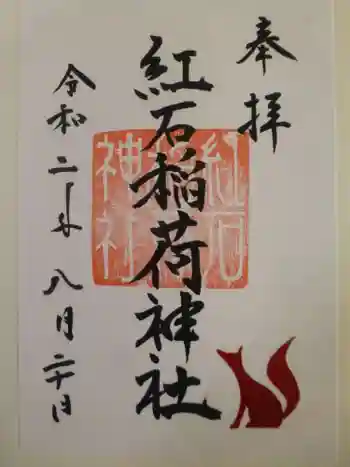 奉拝
紅石稲荷神社
紅石稲荷神社
令和二年八月二十日